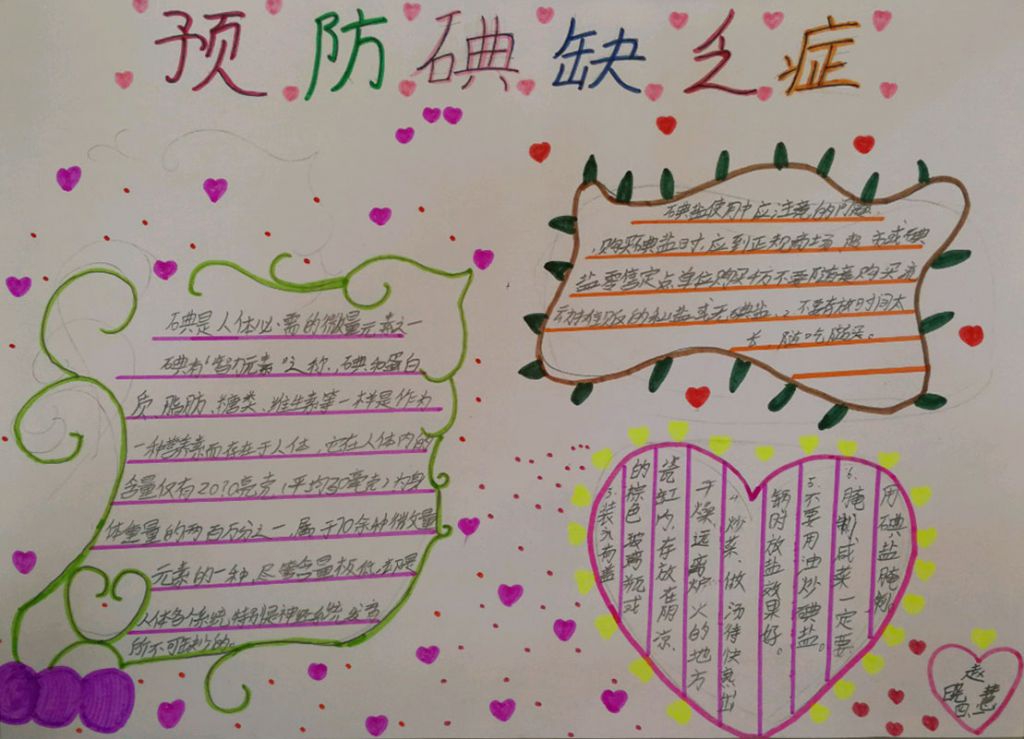 预防碘缺乏症
碘是人体必需的微量元素之一
碘有“智力元素”之称、碘和蛋白
质、脂肪、糖类、维生素等一样是作为
一种营养素而存在于人体,它在人体内的
含量仅有20?0毫克(平均30毫克)为身
体重量的两百万分之一,属于70余种微量
元素的一种,尽管含量极低,却是
人体各个系统,特别是神经系统发育
所不可缺少的。
碘盐使用中应注意的问题
购买碘盐时,应到正规商场、超市或碘
盐零售定点单位购买千万不要随意购买
贩的私盐或无碘盐、2、不要存放时间太
长、随吃随买。
3.装入有盖
的棕色玻璃瓶或
瓷缸内,存放在阴凉、
干燥、远离炉火的地方
4.炒菜、做汤待快熟出
锅时放盐效果好。
5.不要用油炒碘盐。
6.腌制咸菜一定要
用碘盐腌制。
赵
晓慧
四.二